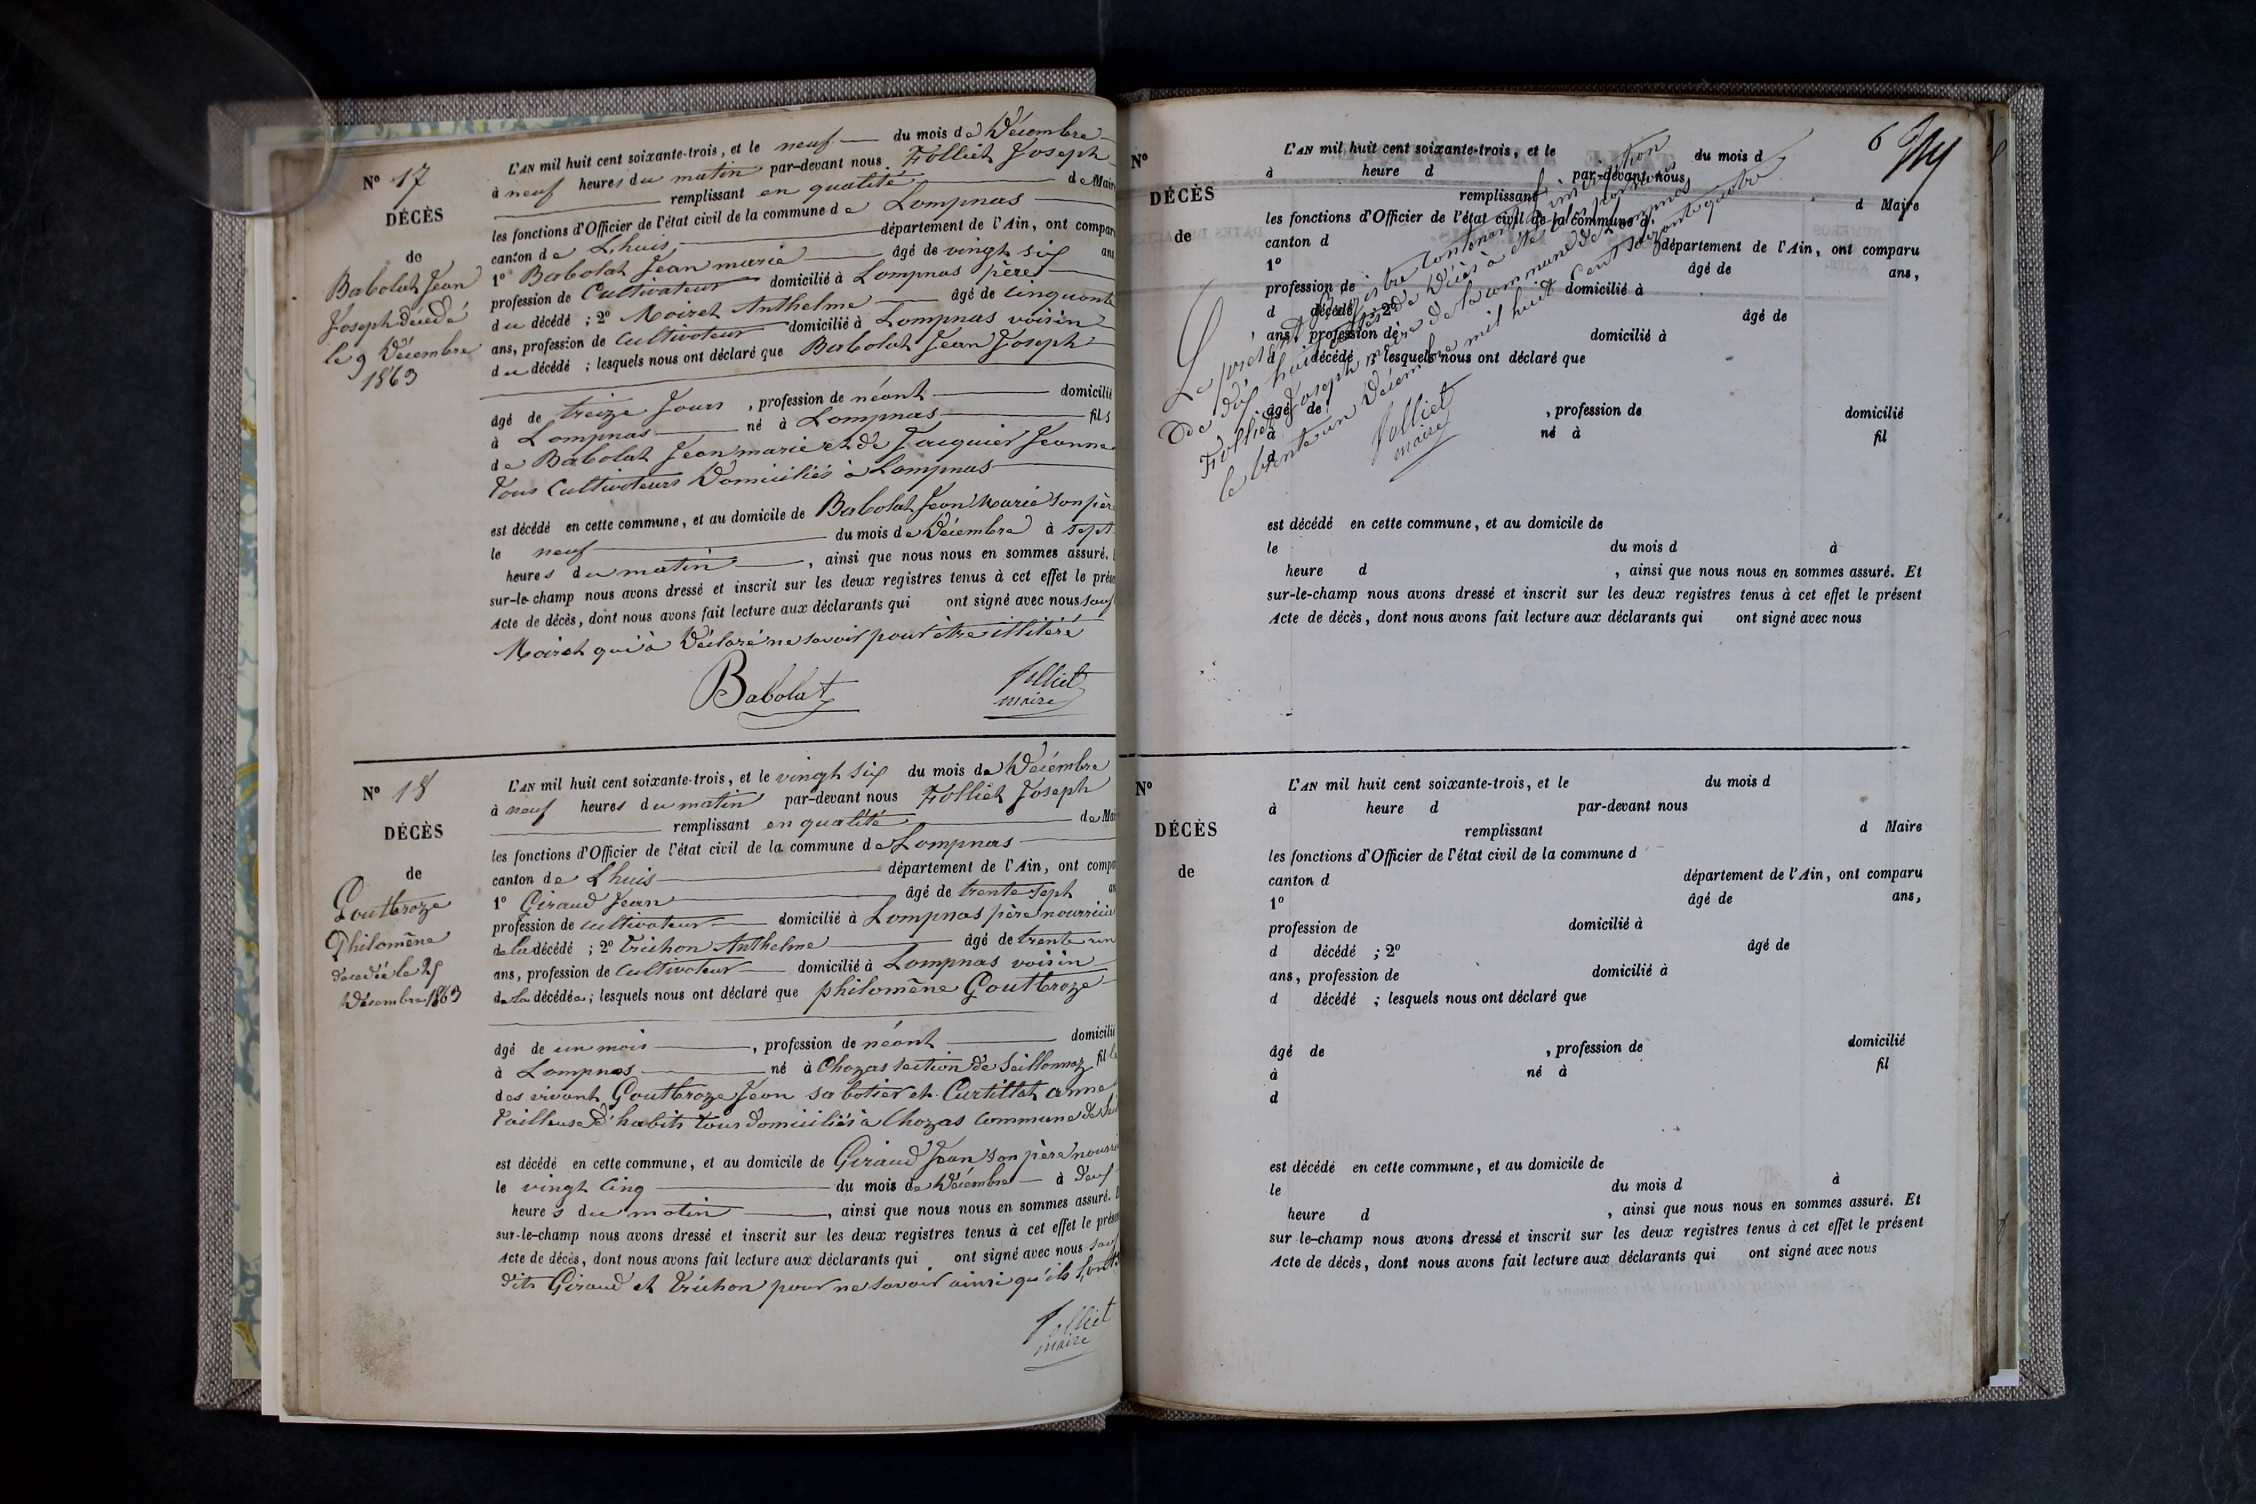 N° 17
DÉCÈS
de
Babolat Jean
Joseph décédé
le 9 Décembre
1863
L'AN mil huit cent soixante-trois, et le neuf du mois de Décembre
à neuf heures du matin par-devant nous Folliet Joseph
remplissant en qualité de Maire
les fonctions d'Officier de l'état civil de la commune de Lompnas
canton de Lhuis département de l'Ain, ont compar
1° Babolat Jean marie âgé de vingt six ans
profession de Cultivateur domicilié à Lompnas père
du décédé ; 2° Moiret Anthelme âgé de cinquante
ans, profession de Cultivateur domicilié à Lompnas voisin
du décédé ; lesquels nous ont déclaré que Babolat Jean Joseph
âgé de treize Jours , profession de néant domicilié
à Lompnas né à Lompnas fils
de Babolat Jean marie et de Jacquier Jeanne
tous Cultivateurs Domiciliés à Lompnas
est décédé en cette commune, et au domicile de Babolat Jean Marie son père
le neuf du mois de Décembre à sept
heures du matin , ainsi que nous nous en sommes assuré.
sur-le-champ nous avons dressé et inscrit sur les deux registres tenus à cet effet le prése
Acte de décès, dont nous avons fait lecture aux déclarants qui ont signé avec nous sauf
Moiret qui à Déclaré ne savoir pour être illitéré
Babolat
Folliet
maire
N° 18
DÉCÈS
de
Goutteroze
Philomène
décedée le 25
Décembre 1863
L'AN mil huit cent soixante-trois, et le vingt six du mois de Décembre
à neuf heures du matin par-devant nous Folliet Joseph
remplissant en qualité de Mai
les fonctions d'Officier de l'état civil de la commune de Lompnas
canton de Lhuis département de l'Ain, ont compa
1° Giraud Jean âgé de trente sept an
profession de cultivateur domicilié à Lompnas père nourricie
de la décédé ; 2° Trichon Anthelme âgé de trente un
ans, profession de Cultivateur domicilié à Lompnas voisin
de la décédée ; lesquels nous ont déclaré que philomène Goutteroze
âgé de un mois , profession de néant domicilié
à Lompnas né à Chozas section de Seillonnaz fille
des vivant Goutteroze Jean sabotier et Curtillat anne
tailleuse d'habits tous domiciliés à Chozas commune de Sei
est décédé en cette commune, et au domicile de Giraud Jean son père nourri
le vingt Cinq du mois de Décembre à
heures du matin , ainsi que nous nous en sommes assuré.
sur-le-champ nous avons dressé et inscrit sur les deux registres tenus à cet effet le prése
Acte de décès, dont nous avons fait lecture aux déclarants qui ont signé avec nous sauf
dits Giraud et Trichon pour ne savoir ainsi qu'ils l'ont
Folliet
maire
6
N°
DÉCÈS
de
L'AN mil huit cent soixante-trois, et le du mois d
à heure d par-devant nous
remplissant d Maire
les fonctions d'Officier de l'état civil de la commune d
canton d département de l'Ain, ont comparu
1° âgé de ans,
profession de domicilié à
d décédé ; 2° âgé de
ans, profession de domicilié à
d décédé ; lesquels nous ont déclaré que
âgé de , profession de domicilié
à né à fil
d
Le présent Registre contenant l'inscription
De dix huit actes de Décès à été clos par nous
Folliet Joseph maire de la commune de Lompnas
le trente un Décembre mil huit cent soixante quatre
Folliet
maire
est décédé en cette commune, et au domicile de
le du mois d à
heure d , ainsi que nous nous en sommes assuré. Et
sur-le-champ nous avons dressé et inscrit sur les deux registres tenus à cet effet le présent
Acte de décès, dont nous avons fait lecture aux déclarants qui ont signé avec nous
N°
DÉCÈS
de
L'AN mil huit cent soixante-trois, et le du mois d
à heure d par-devant nous
remplissant d Maire
les fonctions d'Officier de l'état civil de la commune d
canton d département de l'Ain, ont comparu
1° âgé de ans,
profession de domicilié à
d décédé ; 2° âgé de
ans, profession de domicilié à
d décédé ; lesquels nous ont déclaré que
âgé de , profession de domicilié
à né à fil
d
est décédé en cette commune, et au domicile de
le du mois d à
heure d , ainsi que nous nous en sommes assuré. Et
sur le-champ nous avons dressé et inscrit sur les deux registres tenus à cet effet le présent
Acte de décès, dont nous avons fait lecture aux déclarants qui ont signé avec nous